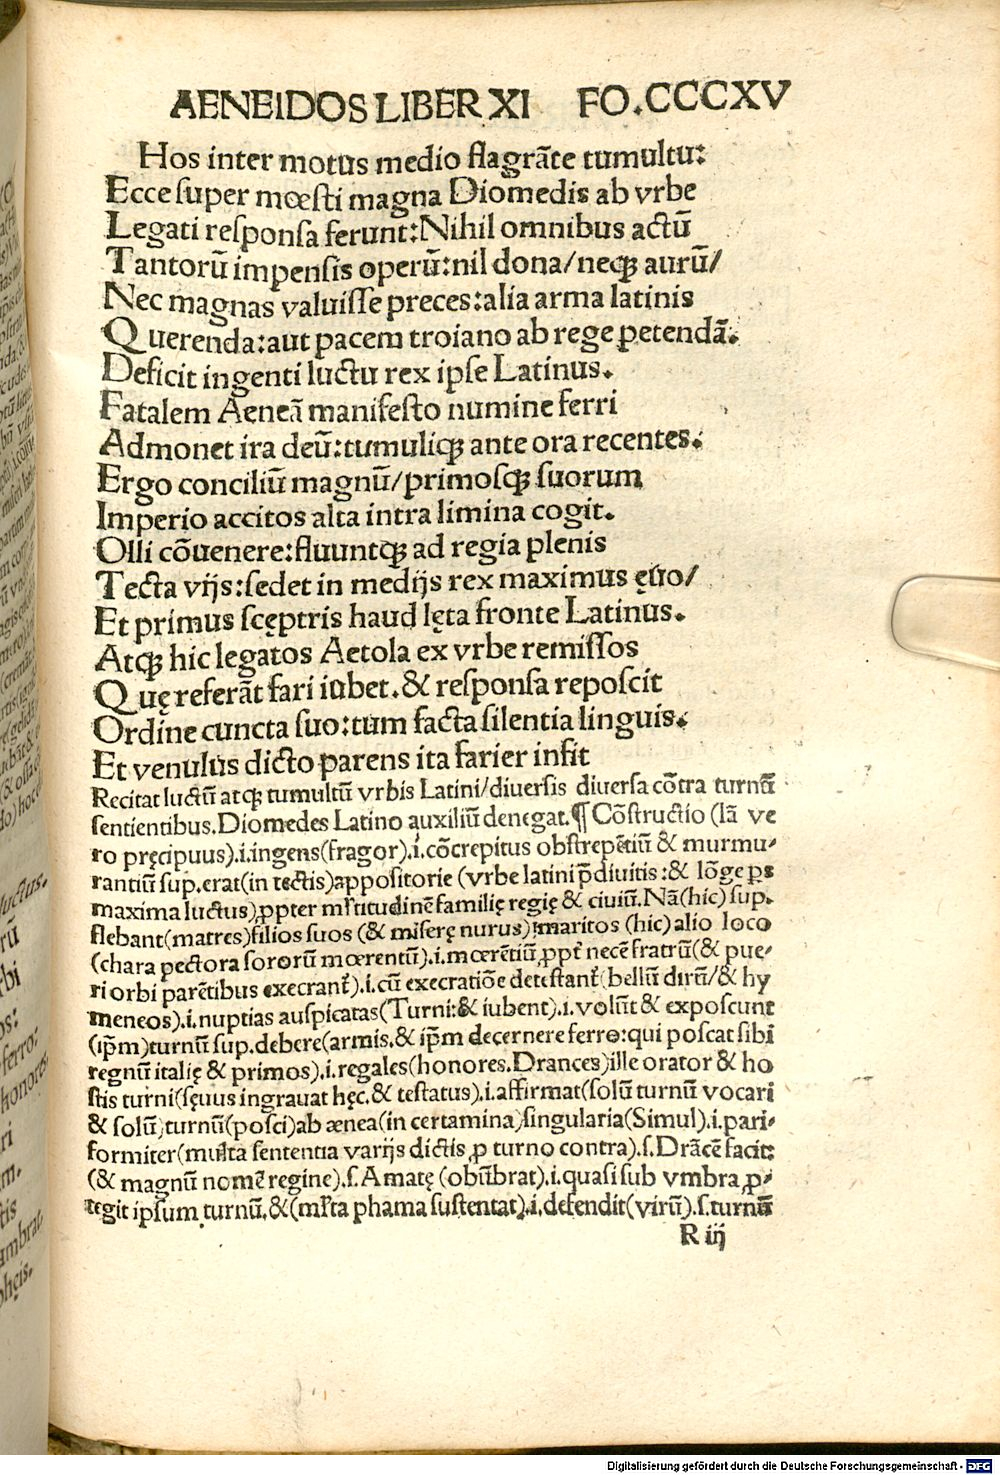 AENEIDOS LIBER XI FO.CCCXV
Hos inter motus medio flagrãte tumultu:
Ecce super mœsti magna Diomedis ab vrbe
Legati responsa ferunt: Nihil omnibus actũ
Tantorũ impensis operũ: nil dona/neqꝫ aurũ/
Nec magnas valuisse preces: alia arma latinis
Querenda: aut pacem troiano ab rege petendã.
Deficit ingenti luctu rex ipse Latinus.
Fatalem Aeneã manifesto numine ferri
Admonet ira deũ: tumuliqꝫ ante ora recentes.
Ergo conciliũ magnũ/primosqꝫ suorum
Imperio accitos alta intra limina cogit.
Olli cõuenere: fluuntqꝫ ad regia plenis
Tecta vijs: sedet in medijs rex maximus ęuo/
Et primus scęptris haud lęta fronte Latinus.
Atqꝫ hic legatos Aetola ex vrbe remissos
Quę referãt fari iubet. & responsa reposcit
Ordine cuncta suo: tum facta silentia linguis.
Et venulus dicto parens ita farier infit
Recitat luctũ atqꝫ tumultũ vrbis Latini/diuersis diuersa cõtra turnũ
sentientibus. Diomedes Latino auxiliũ denegat. ¶ Cõstructio (Iã ve
ro pręcipuus).i.ingens(fragor).i.cõcrepitus obstrepẽtiũ & murmu-
rantiũ sup.erat(in tectis)appositorie (vrbe latini p̃diuitis: & lõge ꝑs
maxima luctus)ꝓpter ml̃titudinẽ familię regię & ciuiũ. Nã(hic) sup.
flebant(matres)filios suos (& miserę nurus) maritos (hic) alio loco
(chara pectora sororũ mœrentũ).i.mœrẽtiũ ꝓpt̃ necẽ fratrũ(& pue-
ri orbi parẽtibus execrant̃).i.cũ execratiõe detestant̃(bellũ dirũ/& hy
meneos).i.nuptias auspicatas(Turni: & iubent).i.volũt & exposcunt
(ip̃m)turnũ sup.debere(armis. & ip̃m decernere ferro: qui poscat sibi
regnũ italię & primos).i.regales(honores. Drances)ille orator & ho
stis turni(sęuus ingrauat hęc. & testatus).i.affirmat(solũ turnũ vocari
& solũ)turnũ(posci)ab ænea(in certamina)singularia(Simul).i.pari-
formiter(multa sententia varijs dictis ꝓ turno contra).s.Drãcẽ facit:
(& magnũ nomẽ regine).s.Amatę (obũbrat).i.quasi sub vmbra ꝓ-
tegit ipsum turnũ. &(ml̃ta phama sustentat).i.defendit(virũ).s.turnũ
R iij
Digitalisierung gefördert durch die Deutsche Forschungsgemeinschaft - DFG